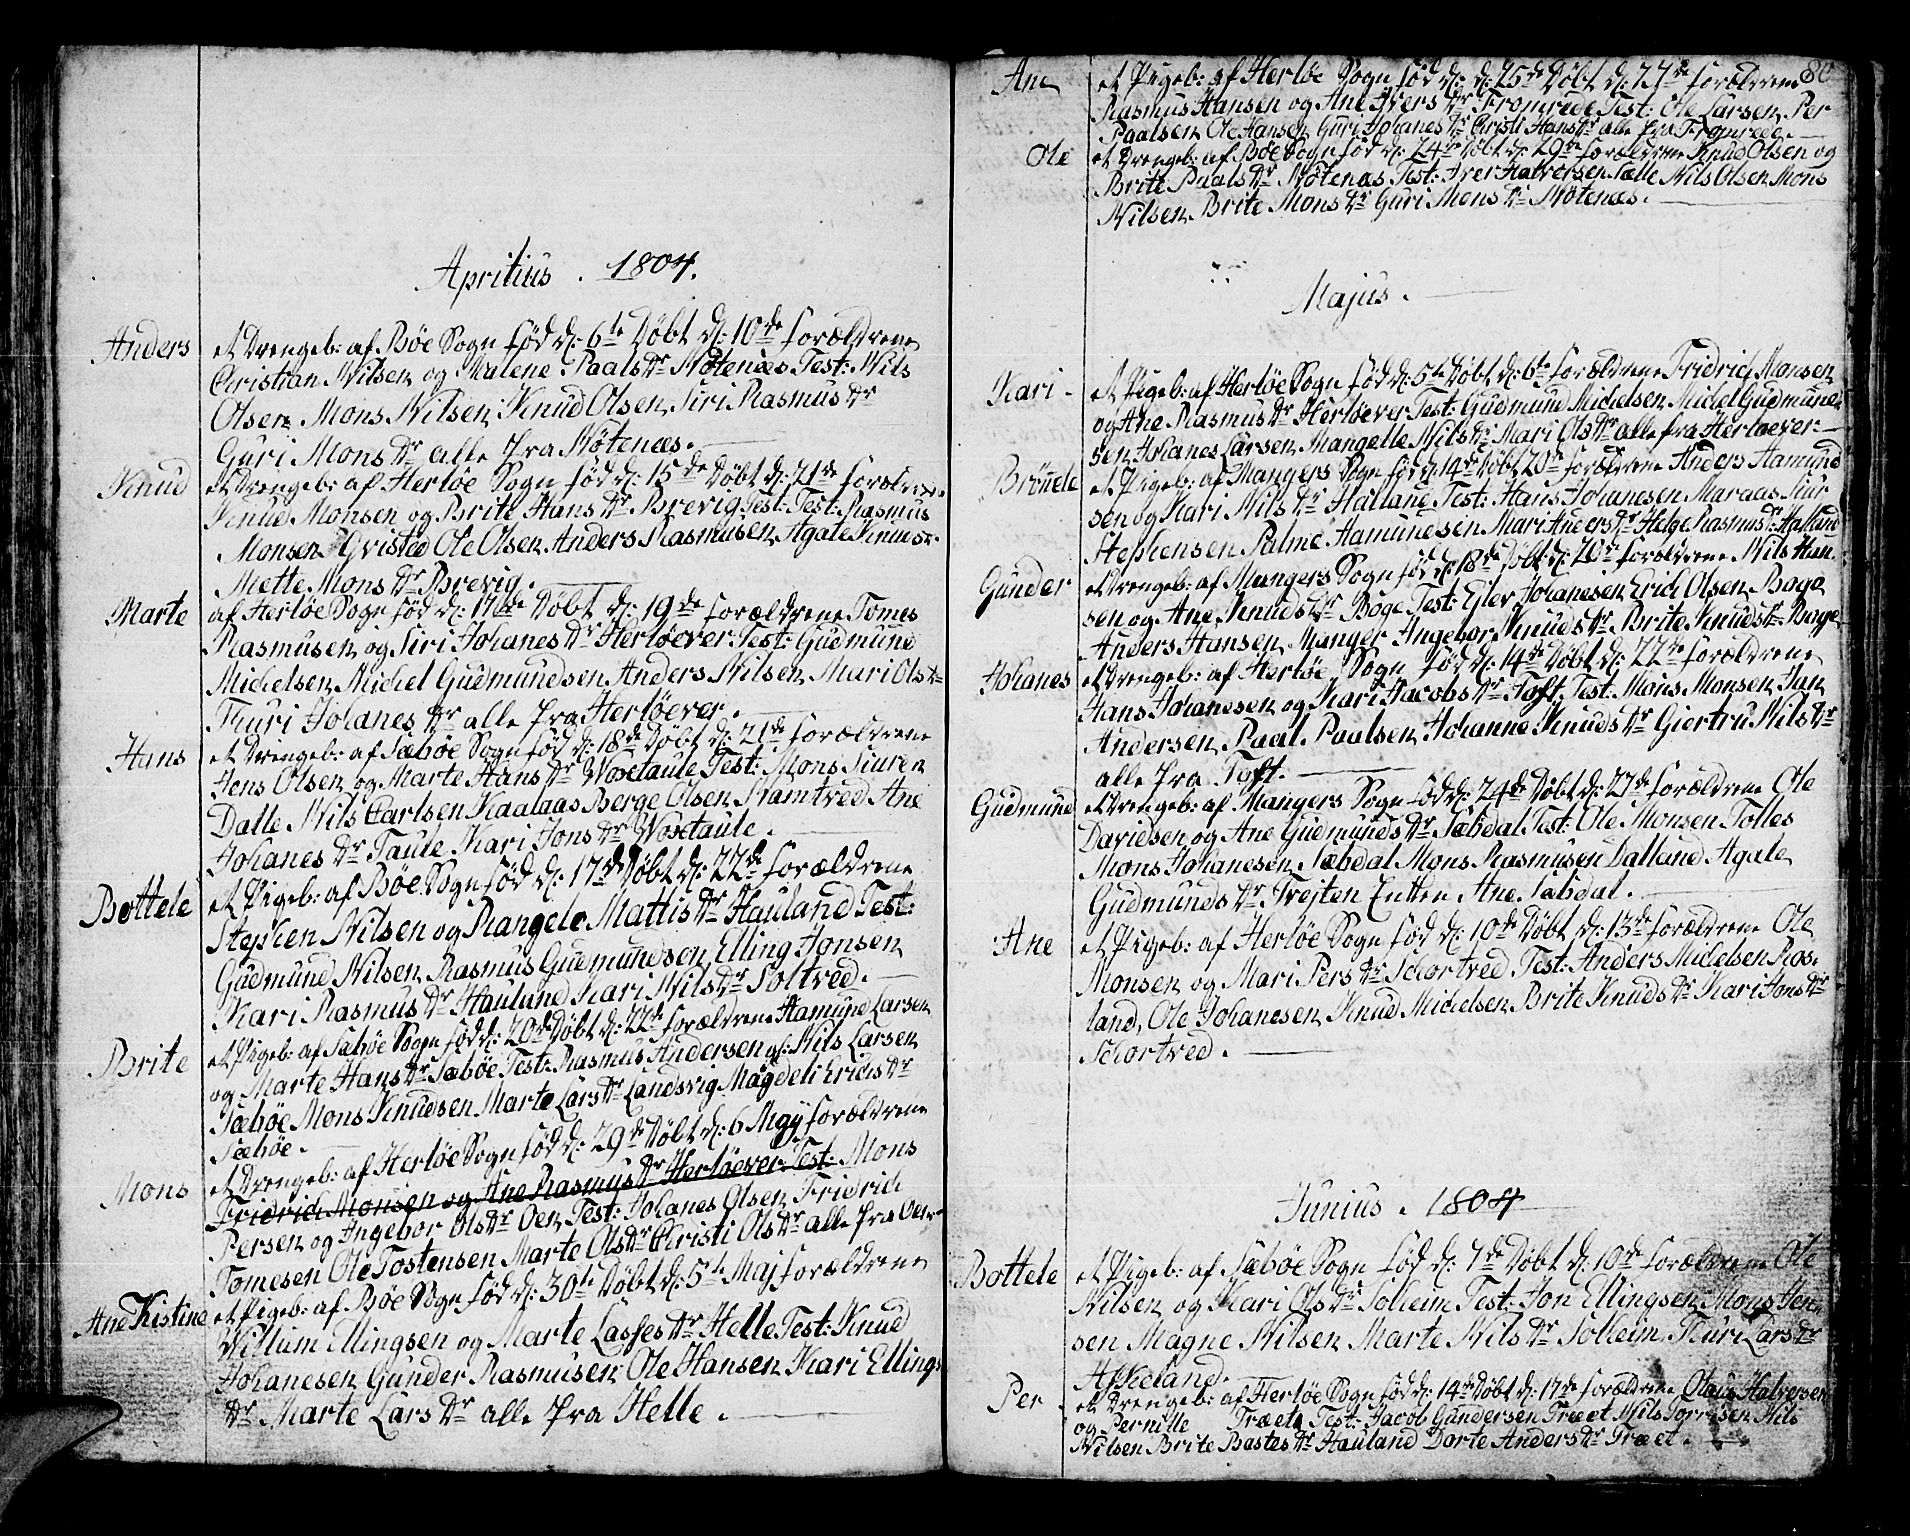 Aprilius . 1804.
Anders et Drengeb: af Bøe Sogn fød d: 6te Døbt d: 10de forældrene
Christian Nilsen og Malene Paals Dr Nøtenæs Test: Nils
Olsen Mons Nilsen Knud Olsen Siri Rasmus Dr
Guri Mons Dr alle fra Nøtenæs.
Knud et Drengeb: af Herløe Sogn fød d: 15de Døbt d: 21de forældrene
Knud Monsen og Brite Hans Dr Brevig Test: Test: Rasmus
Monsen Qvisted Ole Olsen Anders Rasmusen Agate Knuds Dr
Mette Mons Dr Brevig.
Marte af Herløe Sogn fød d: 17de Døbt d: 19de forældrene Tomes
Rasmusen og Siri Johanes Dr Herløever Test: Gudmund
Michelsen Michel Gudmundsen Anders Nilsen Mari Ols Dr
Turi Johanes Dr alle fra Herløever.
Hans et Drengeb: af Sæbøe Sogn fød d: 18de Døbt d: 21de forældrene
Jens Olsen og Marte Hans Dr Woxetaule Test: Mons Siuren
Dalle Nils Carlsen Kaalaas Berge Olsen Namtved Ane
Johanes Dr Taule Kari Jons Dr Woxetaule.
Bottele et Pigeb: af Bøe Sogn fød d: 17de Døbt d: 22de forældrene
Stephen Nilsen og Rangele Mattis Dr Hauland Test:
Gudmund Nilsen Rasmus Gudmundsen Elling Hansen
Kari Rasmus Dr Hauland Kari Nils Dr Soltved.
Brite et Pigeb: af Sæbøe Sogn fød d: 20de Døbt d: 22de forældrene Hamund Larsen
og Marte Hans Dr Sæbøe Test: Rasmus Andersen gl: Nils Larsen
Sæbøe Mons Knudsen Marte Lars Dr Landsvig Magdeli Erichs Dr
Sæbøe.
Mons et Drengeb: af Herløe Sogn fød d: 29de Døbt d: 6 Maÿ forældrene
Fridrich Monsen og Ane Rasmus Dr Herløever Test: Mons
Persen og Ingebor Ols Dr Oen Test: Johanes Olsen Fridrich
Tomesen Ole Tostensen Marte Ols Dr Christi Ols Dr alle fra Oen
Ane Kistine et Pigeb: af Bøe Sogn fød d: 30te Døbt d: 5te Maj forældrene
Willum Ellingsen og Marte Lasses Dr Helle Test: Knud
Johanesen Gunder Rasmusen Ole Hansen Kari Ellings
Dr Marte Lars Dr alle fra Helle.
80
Ane et Pigeb: af Herløe Sogn fød d: d: 25de Døbt d: 27de forældrene
Rasmus Hansen og Ane Ivers Dr Fromrede Test: Ole Larsen Per
Paalsen Ole Hansen Guri Johanes Dr Christi Hans Dr alle fra Fromrede.
Ole et Drengeb: af Bøe Sogn fød d: 24de Døbt d: 29de forældrene Knud Olsen og
Brite Paals Dr Nøtenæs Test: Iver Halversen Sælle Nils Olsen Mons
Nilsen Brite Mons Dr Guri Mons Dr Nøtenæs.
Majus.
Kari et Pigeb: af Herløe Sogn fød d: 5te Døbt d: 6te forældrene Fridrich Monsen
og Ane Rasmus Dr Herløever Test: Gudmund Michelsen Michel Gudmund
sen Johanes Larsen Mangelle Nils Dr Mari Ols Dr alle fra Herløever:
Brønele et Pigeb: af Mangers Sogn fød d: 14de Døbt 20de forældrene Anders Hamund
sen og Kari Nils Dr Halland Test: Hans Johanesen Maraas Siur
Stephensen Palme Hamundsen Mari Anders Dr Helge Rasmus Dr Halland
Gunder et Drengeb: af Mangers Sogn fød d: 18de Døbt d: 20de forældrene Nils Han
sen og Ane Knuds Dr Boge Test: Ejlev Johanesen Erich Olsen Boge
Anders Hansen Manger Ingebor Knuds Dr Brite Knuds Dr Boge
Johanes et Drengeb: af Herløe Sogn fød d: 14de Døbt d: 22de forældrene
Hans Johanesen og Kari Jacobs Dr Toft Test: Mons Monsen Jan
Andersen Paal Paulsen Johanne Knuds Dr Giertru Nils Dr
alle fra Toft.
Gudmund et Drengeb: af Mangers Sogn fød d: 24de Døbt d: 27de forældrene Ole
Davidsen og Ane Gudmunds Dr Sæbdal Test: Ole Monsen Tolles
Mons Johanesen Sæbdal Mons Rasmusen Dalland Agale
Gudmunds Dr Trejten Enken Ane Sæbdal.
Ane et Pigeb: af Herløe Sogn fød d: 10de Døbt d: 13de forældrene Ole
Monsen og Mari Pers Dr Schortved Test: Anders Michelsen Ros
land, Ole Johanesen Knud Michelsen Brite Knuds Dr Kari Jons Dr
Schortved.
Junius . 1804
Bottele et Pigeb: af Sæbøe Sogn fød d: 7de Døbt d: 10de forældrene Ole
Nilsen og Kari Ols Dr Solheim Test: Jon Ellingsen Mons Jen
sen Magne Nilsen Marte Nils Dr Solheim Turi Lars Dr
Askeland.
Per et Drengeb: af Herløe Sogn fød d: 14de Døbt d: 17de forældrene Olaus Halversen
og Pernille Træet Test: Jacob Gundersen Træet Nils Torrisen Nils
Nilsen Brite Bastes Dr Hauland Dorte Anders Dr Træet.